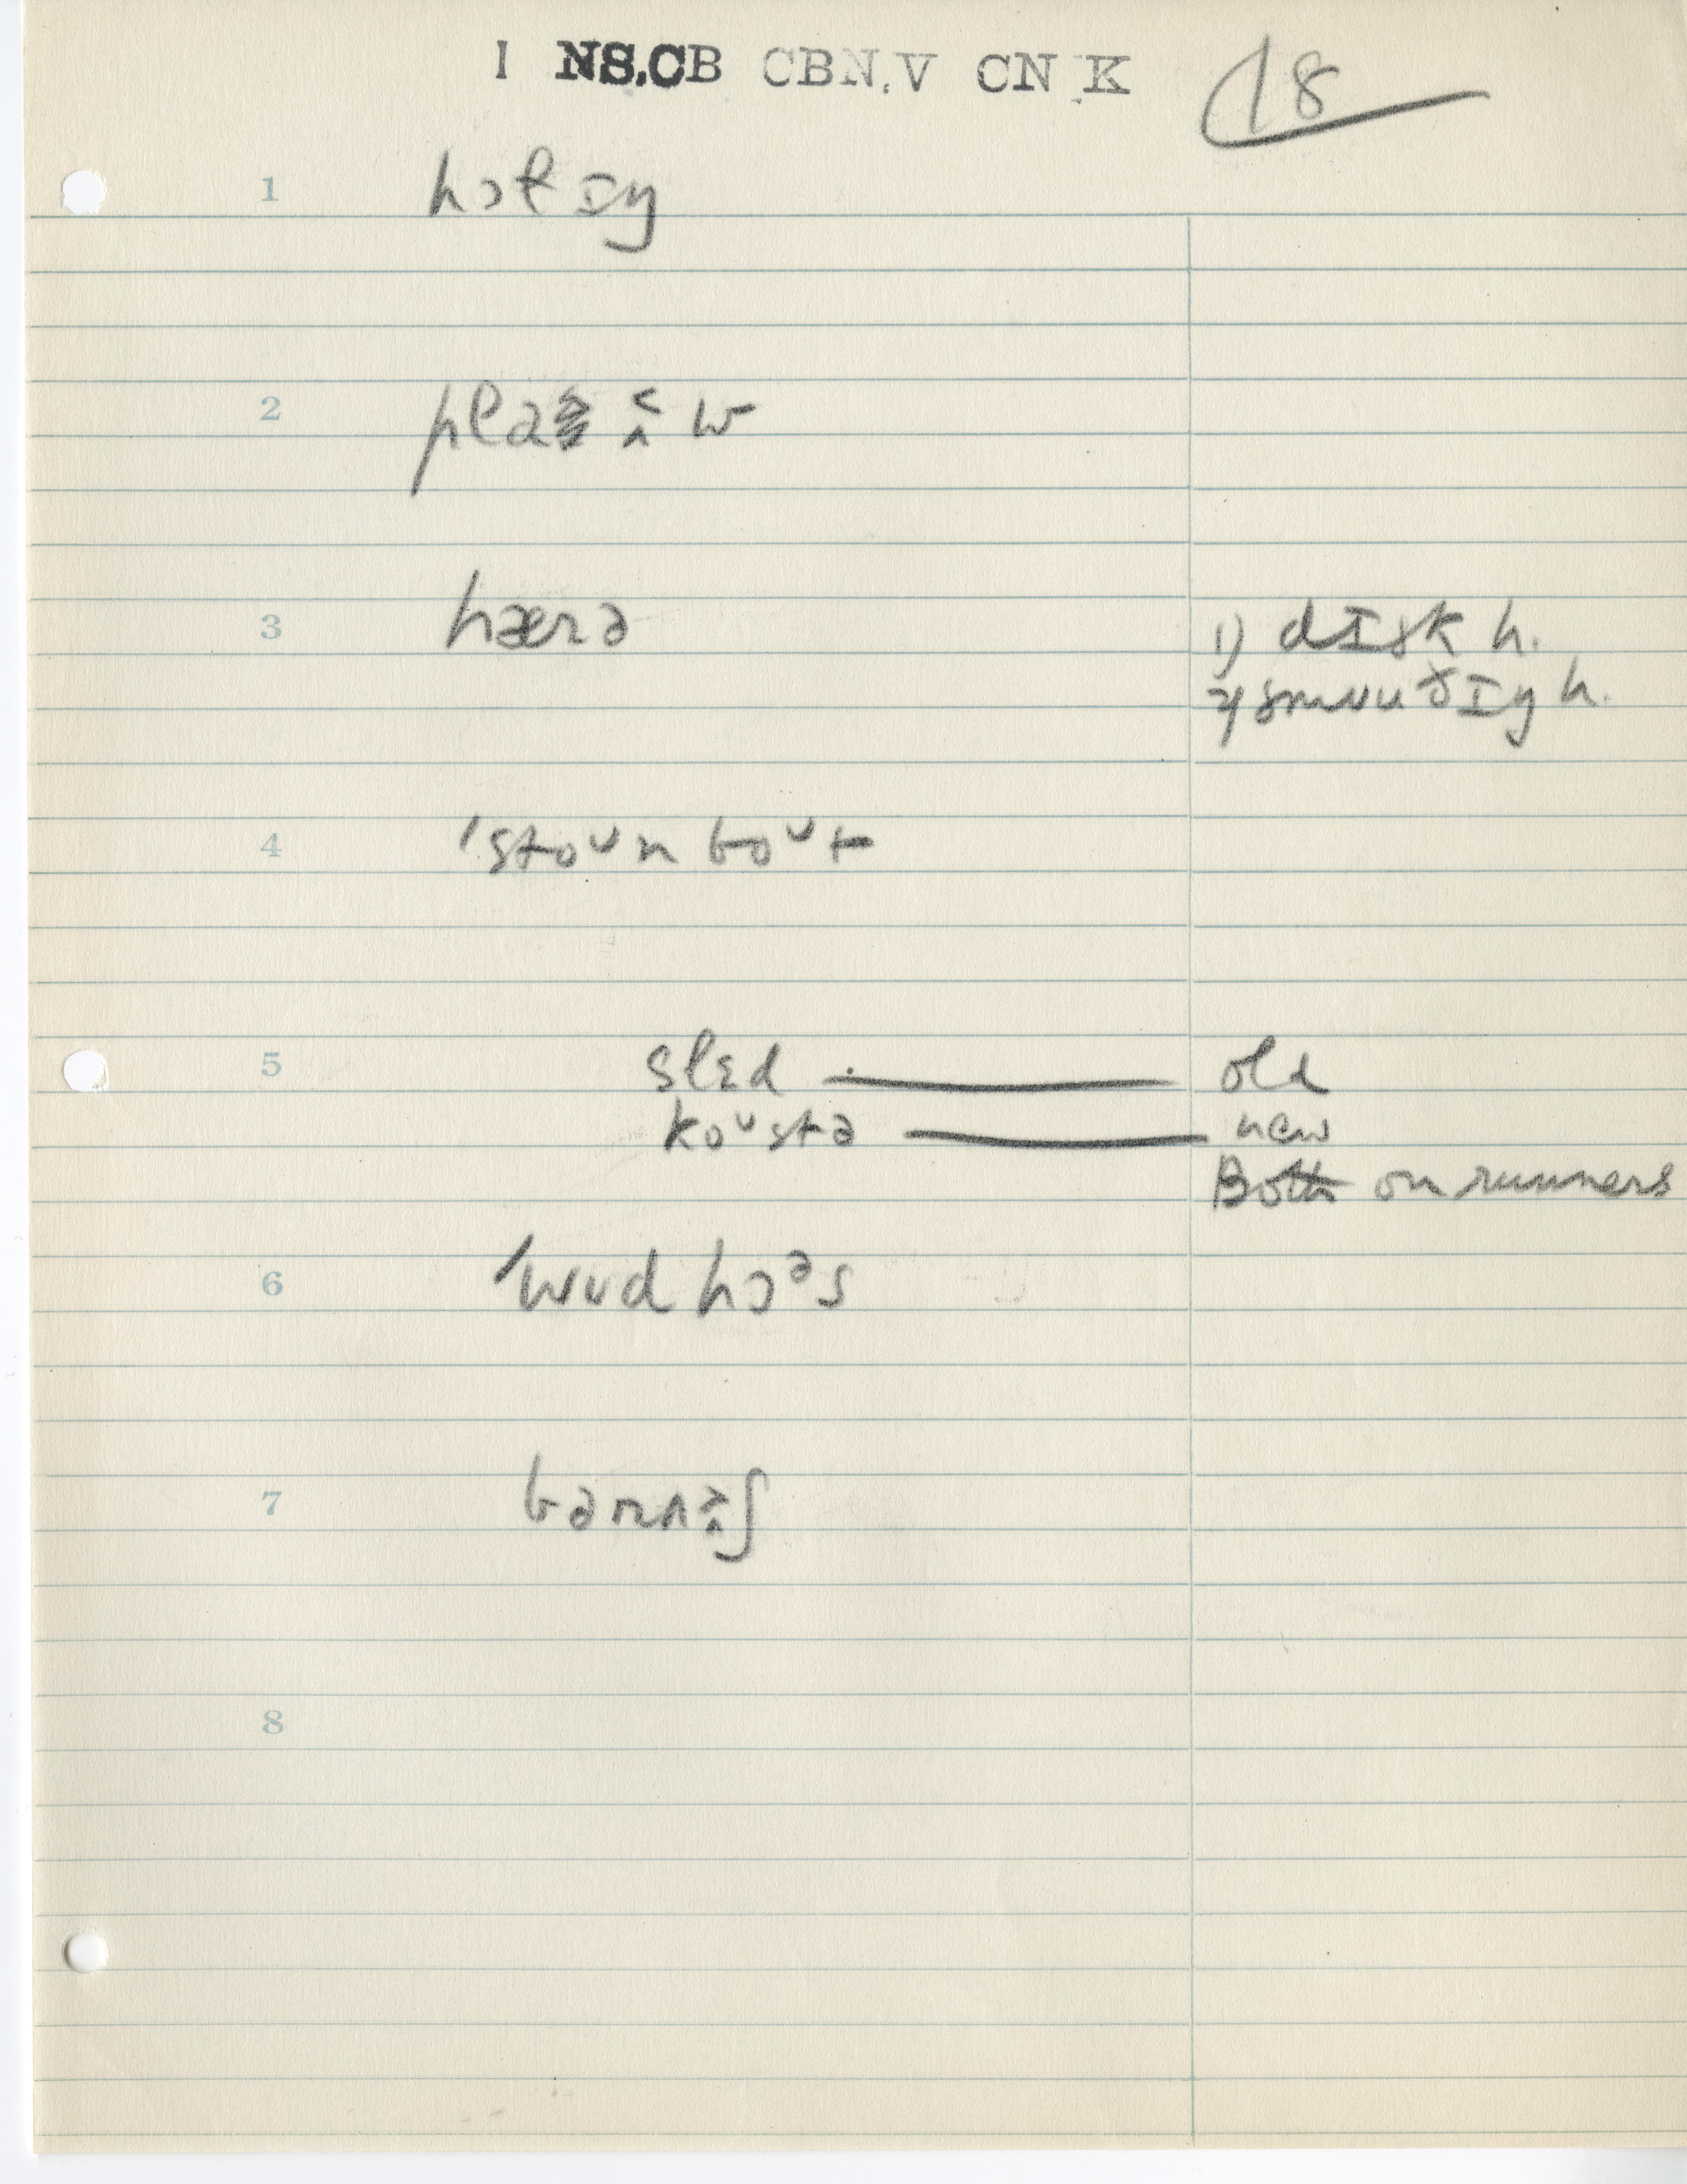 I NS.CB CBN.V CN K 18
1 hɔl ɪy
2
3 hærə 1) dɪsk h.
2) smuuðɪy h.
4 'stoᴜn boᴜt
5 slɛd — old
koᴜstə — new
Both on runners
6 'wud hɔᵊs
7
8